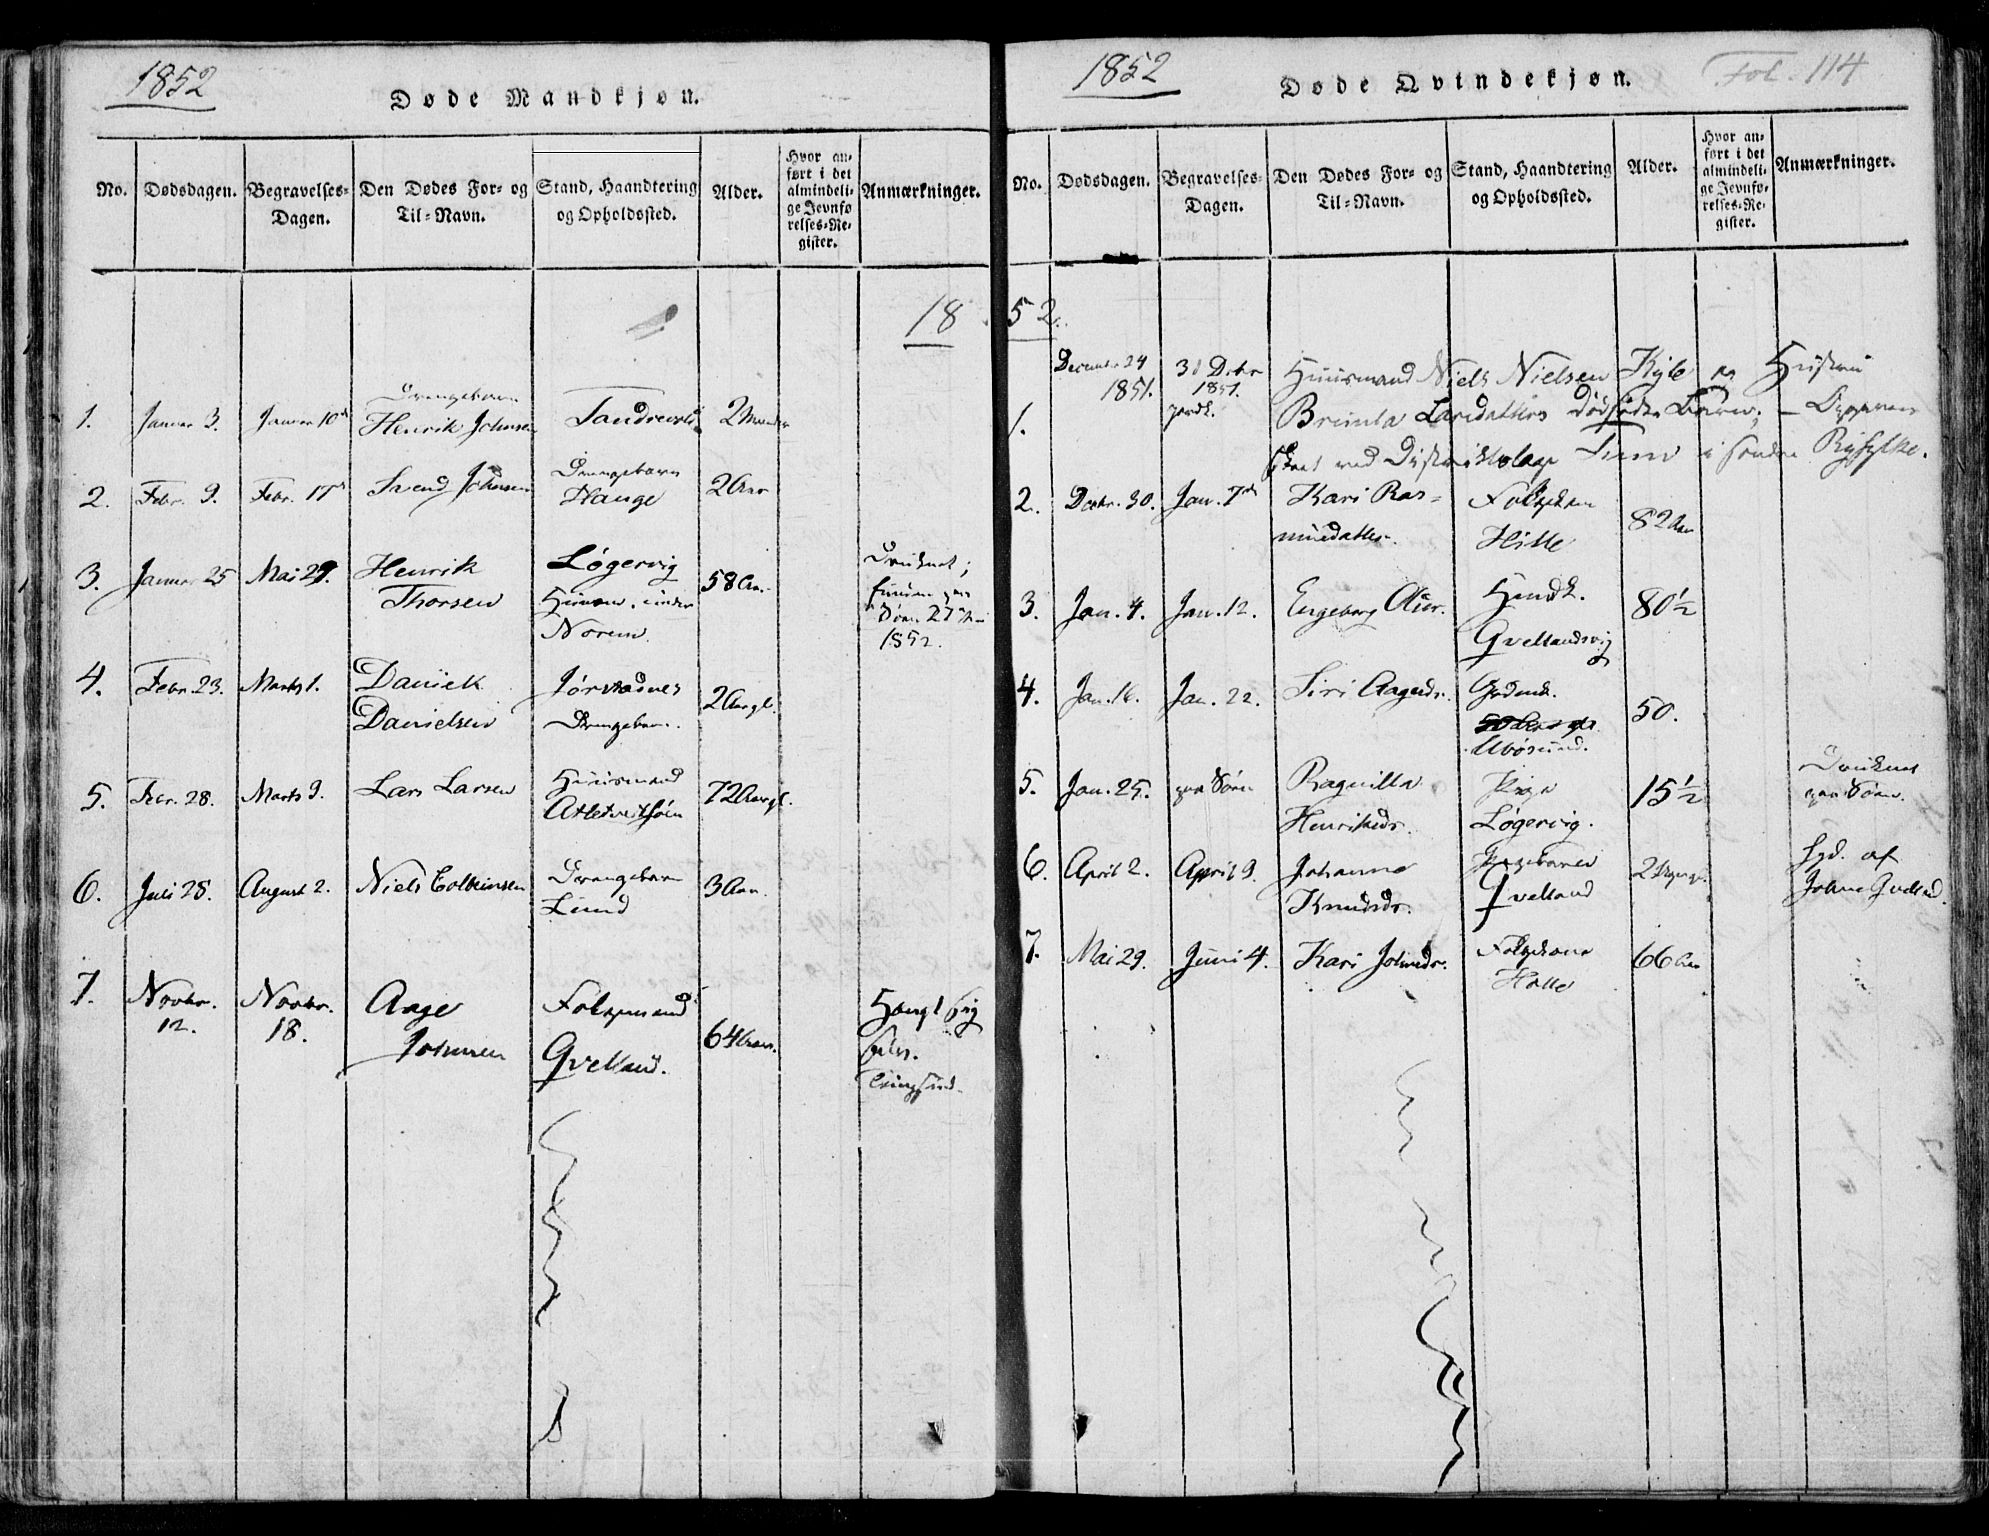 1852
Døde Mandkjøn.
No.
Dødsdagen.
Begravelses-
Dagen.
Den Dødes For- og
Til-Navn.
Stand, Haandtering
og Opholdssted.
Alder.
Hvor an-
ført i det
almindeli-
ge Jevnfø
relses-Re-
gister.
Anmærkninger.
18
1. Januar 3. Januar 10de
Drengebarn
Henrik Johnsen
2 Maaneder
2. Febr. 9. Febr. 17de
Svend Johnsen
Drengebarn
Hauge
2 Aar
3. Januar 25 Mai 29.
Henrik
Thorsen
Løgervig
Huusm. under
Norem.
58 Aar.
Druknet;
funden paa
Søen 27
1852.
4. Febr. 23. Marts 1.
Daniel
Danielsen
Jørstadnes
Drengebarn.
2 Aar gl.
5. Febr. 28. Marts 9.
Lars Larsen
Huusmand
72 Aar gl.
6. Juli 28. August 2.
Niels Colbeinsen
Drengebarn
Lund
3 Aar.
7. Novbr.
12.
Novbr.
18.
Aage
Johnsen
Folgemand
Qvelland.
64 Aar.
Hængt sig
selv.
1852
Døde Qvindekjøn.
Fol. 114
No.
Dødsdagen.
Begravelses-
Dagen.
Den Dødes For- og
Til-Navn.
Stand, Haandtering
og Opholdssted.
Alder.
Hvor an-
ført i det
almindeli-
ge Jevnfø-
relses-Re-
gister.
Anmærkninger.
52.
1.
December 24
1851.
31 Decbr
1851.
jordk.
Huusmand Niels Nielsen og Hustru
Larsdatters Dødfødte Barn;
i søndre Ryfylke.
2. Decbr. 30. Jan. 7de
Kari Ras-
musdatter.
Folgekone
Hille
82 Aar
3. Jan. 4. Jan. 12.
Engeborg
Qvellandsvig
80 1/2
4. Jan. 16. Jan. 22.
Siri Aagesdr.
Grdmk.
50.
5. Jan. 25. paa Søen
Ragnilla
Henriksdr.
Pige
Løgervig.
15 1/2
Druknet
paa Søen.
6. April 2. April 9.
Johanne
Knudsdr.
Pigebarn
Qvelland
af
7. Mai 29. Juni 4.
Kari Johnsdr.
Folgekone
66 Aar